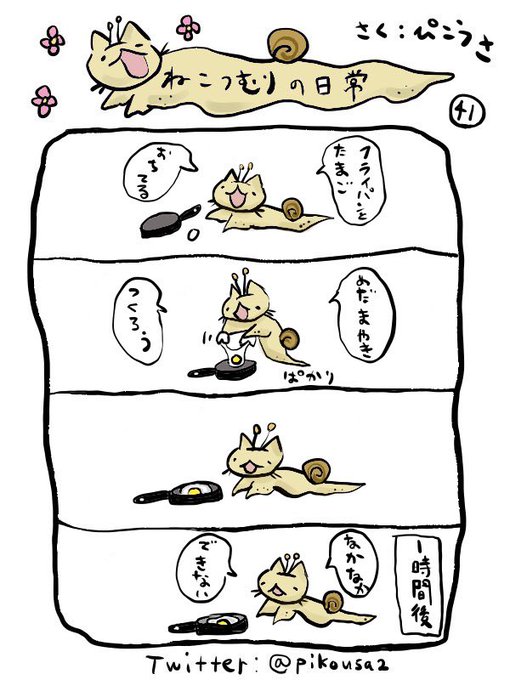 ねこつむりの日常
さく：ぴこうさ
41
フライパンと
たまご
おちてる
めだまやき
つくろっ
ぱかり
1時間後
なかなか
できない
Twitter:@pikousa2